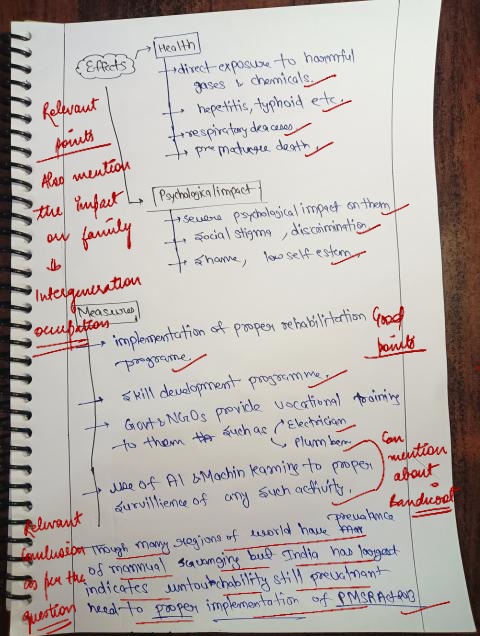 Effects
Health
direct exposure to harmful
gases & chemicals.
hepetitis, typhoid etc.
respiratory deaceses
prematuree death
Relevant
points
Also mention
the impact
on family
Intergeneration
occupation
Psychological impact
severe psychological impact on them
social stigma, discrimination
shame, low self estem
Measures
implementation of proper rehabilirtation
programe.
Good
points
skill development programme.
Govt & NGOs provide vocational training
to them such as Electrician
Plumber
use of AI & Machin learning to proper
survillience of any such activity.
Can
mention
about
Bandicoot
Relevant
Conclusion
as per the
question
Though many regions of world have prevalance
of mannual scavanging but India has largest
indicates untouchability still prevalnant
need to proper implementation of